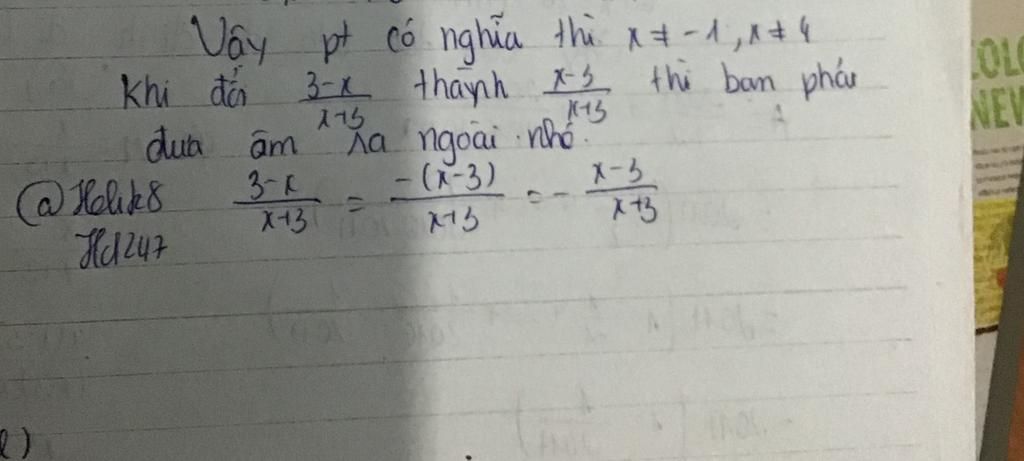 Vậy pt có nghĩa thì x ≠ -1, x ≠ 4
Khi đổi \frac{3-x}{x+3} thành \frac{x-3}{x+3} thì bạn phải
đưa âm ra ngoài nhó.
@Helik8 \frac{3-x}{x+3} = \frac{-(x-3)}{x+3} = - \frac{x-3}{x+3}
Hd247